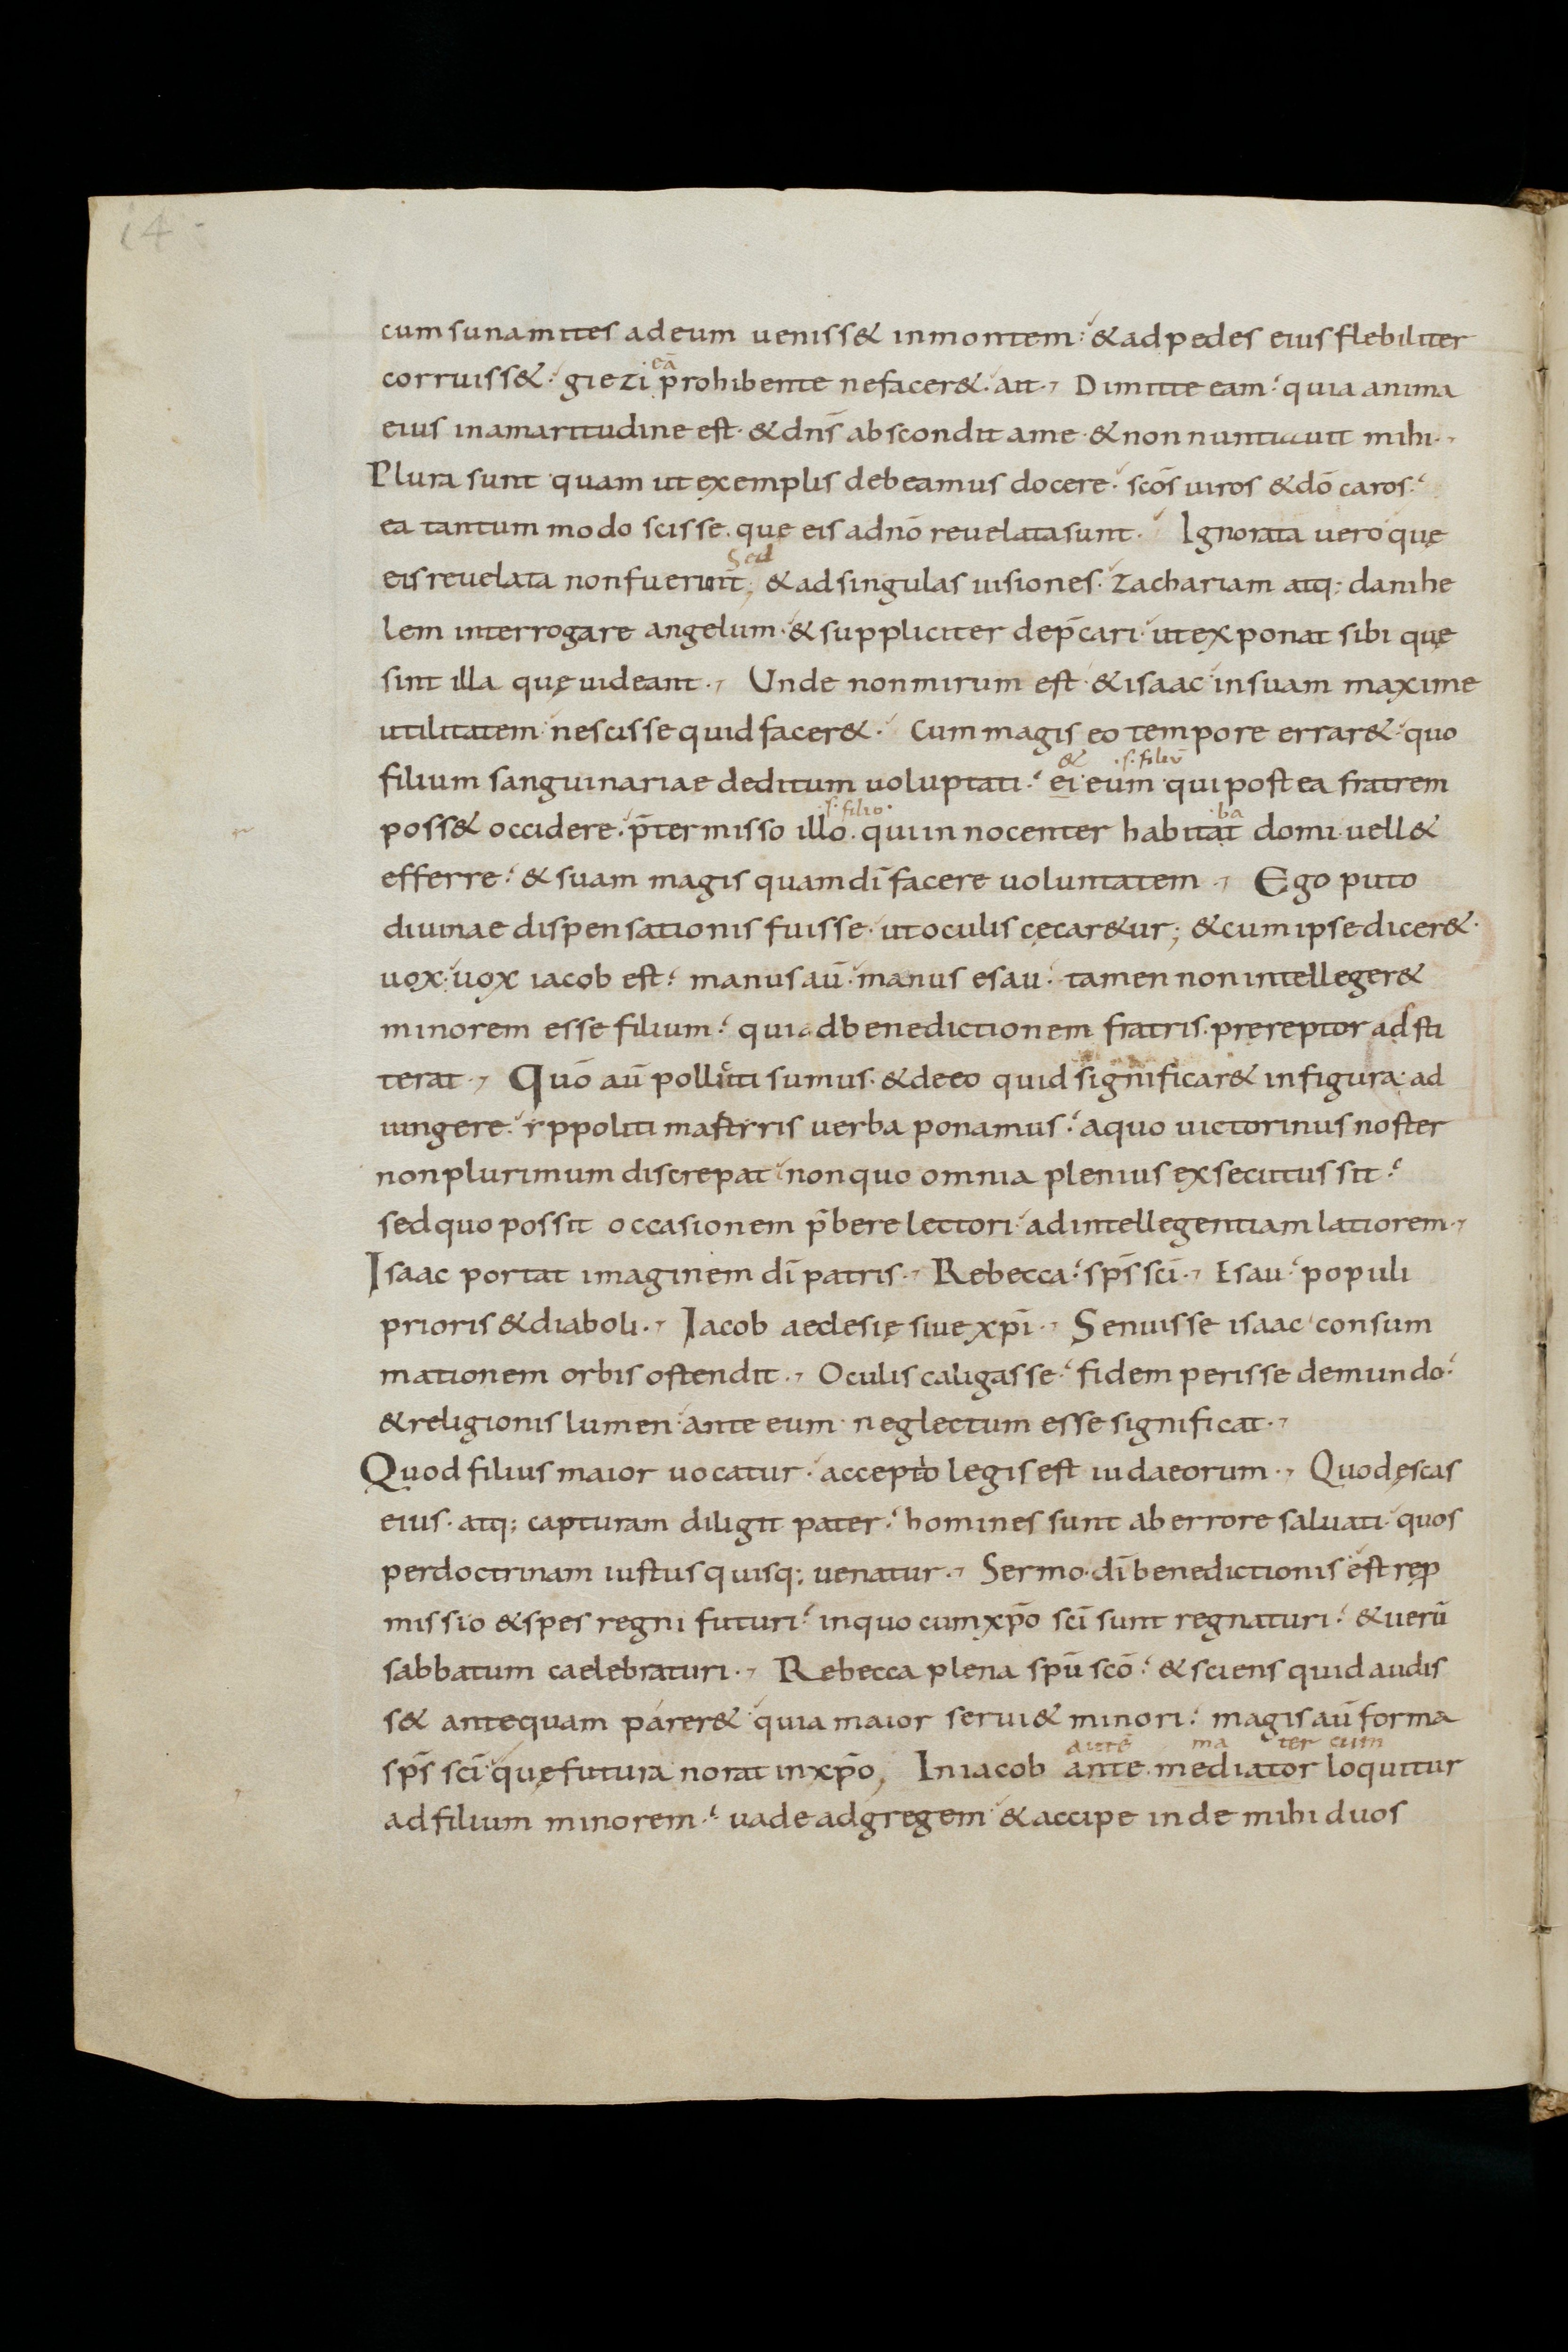 14
cum sunamites ad eum ueniss& in montem· & ad pedes eius flebiliter
eā
corruiss&· giezi prohibente ne facer&· ait·, Dimitte eam· quia anima
eius in amaritudine est· & dn̄s abscondit a me & non nuntiauit mihi·,
Plura sunt quam ut exemplis debeamus docere· scōs uiros & dō caros·
ea tantum modo scisse· quę eis a dnō reuelata sunt· Ignorata uero quę
Sed
eis reuelata non fuerint; & ad singulas uisiones· zachariam atq; danihe
lem interrogare angelum· & suppliciter dep̄cari· ut exponat sibi quę
sint illa quę uideant·, Unde non mirum est & isaac in suam maxime
utilitatem nescisse quid facer&· Cum magis eo tempore errar&· quo
& ·s· filiū
filium sanguinariae deditum uoluptati· ei eum qui postea fratrem
·s· filio· ·ba
poss& occidere· p̄termisso illo· qui innocenter habitat domi uell&
efferre· & suam magis quam dī facere uoluntatem·, Ego puto
diuinae dispensationis fuisse· ut oculis cęcar&ur; & cum ipse dicer&·
uox· uox iacob est· manus aū· manus esau· tamen non intelleger&
minorem esse filium· qui ad benedictionem fratris· pręreptor adsti
terat·, Quō aū polliciti sumus· & de eo quid significar& in figura· ad
iungere· yppoliti martyris uerba ponamus· a quo uictorinus noster
non plurimum discrepat· non quo omnia plenius exsecutus sit·
sed quo possit occasionem p̄bere lectori· ad intellegentiam latiorem·,
Isaac portat imaginem dī patris·, Rebecca· sp̄s scī·, Esau· populi
prioris & diaboli·, Iacob aeclesię siue xp̄i·, Senuisse isaac consum
mationem orbis ostendit·, Oculis caligasse· fidem perisse de mundo·
& religionis lumen ante eum neglectum esse significat·,
Quod filius maior uocatur· acceptio legis est iudaeorum·, Quod ęscas
eius· atq; capturam diligit pater· homines sunt ab errore saluati· quos
per doctrinam iustus quisq; uenatur·, Sermo· dī benedictionis est rep
missio & spes regni futuri· in quo cum xp̄o scī sunt regnaturi· & uerū
sabbatum caelebraturi·, Rebecca plena spū scō· & sciens quid audis
s& antequam parer&· quia maior serui& minori· magis aū forma
autē ma ter cum
sp̄s scī· quę futura norat in xp̄o, In iacob ante mediator loquitur
ad filium minorem· uade ad gregem & accipe inde mihi duos